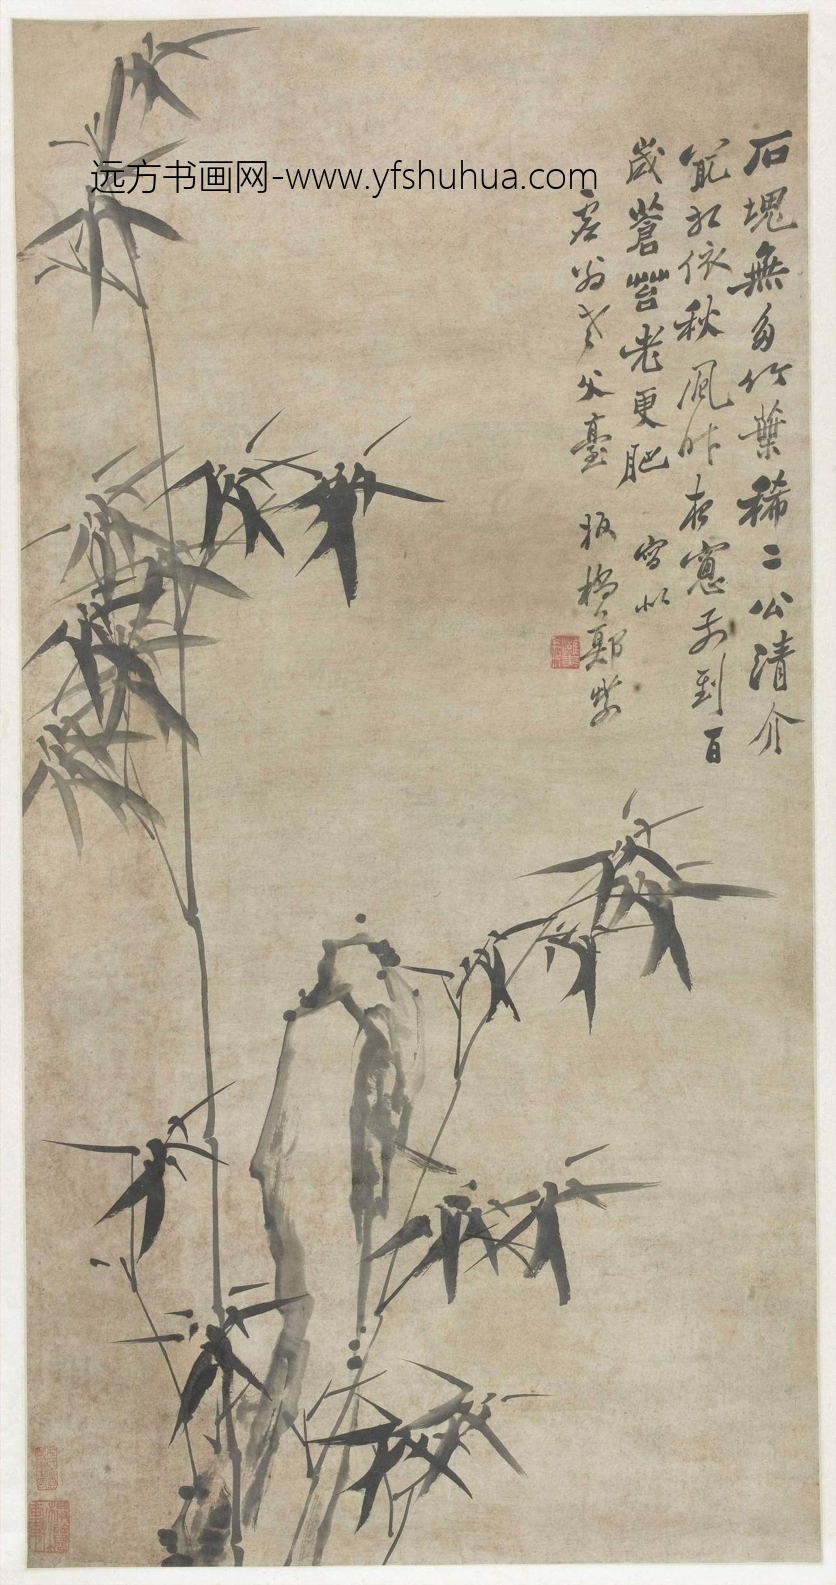 远方书画网-www.yfshuhua.com
石塊無多竹葉稀二公清介
最相依秋風昨夜窓前到百
歲蒼苔老更肥 寫似
老父臺 板橋鄭燮